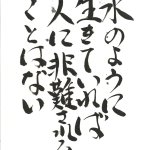 水のように
生きていれば
人に非難される
ことはない